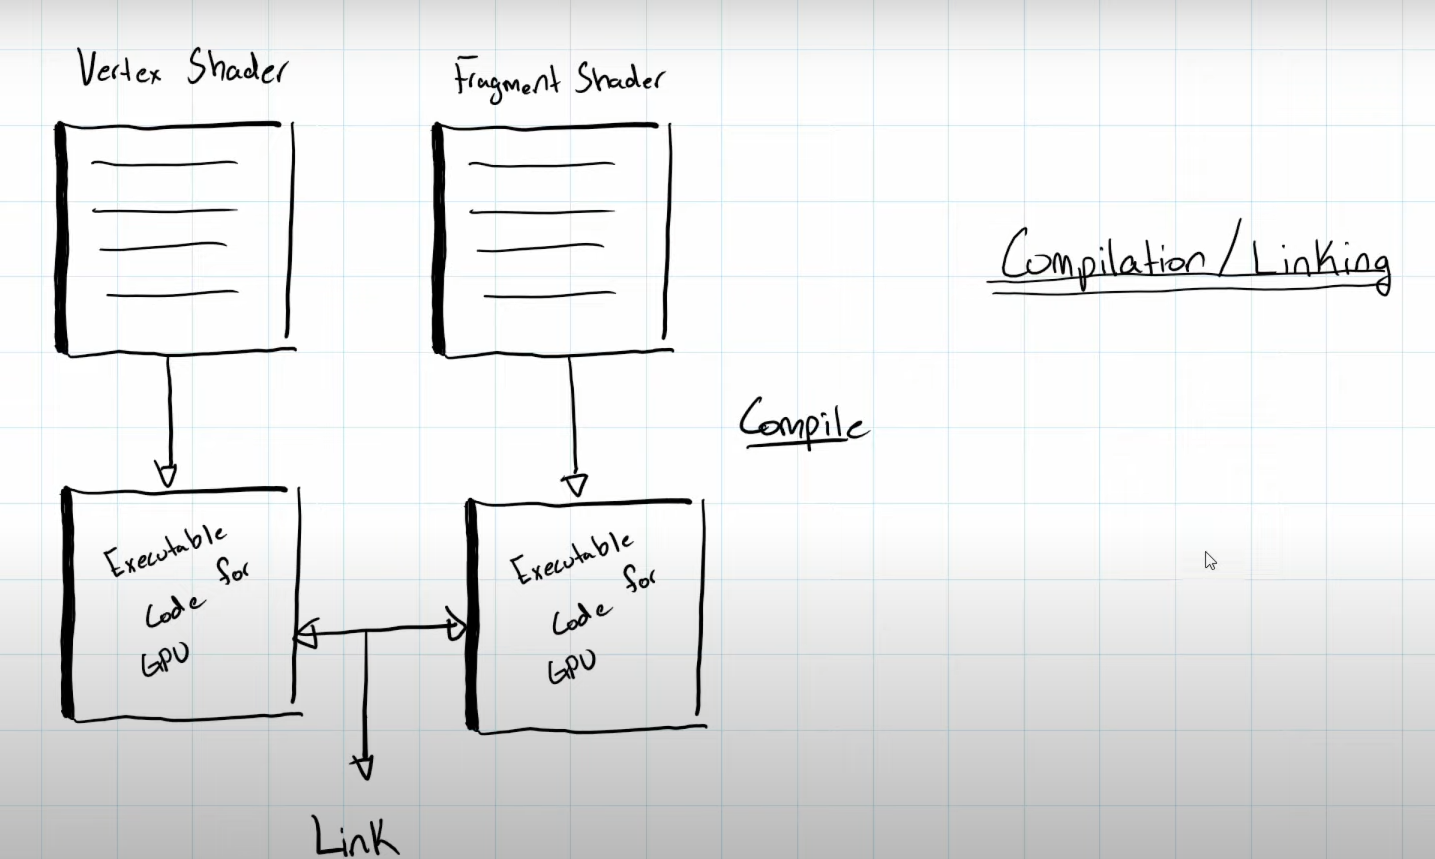 Vertex Shader
Fragment Shader
Compilation/Linking
Compile
Executable
Code for
GPU
Executable
Code for
GPU
Link